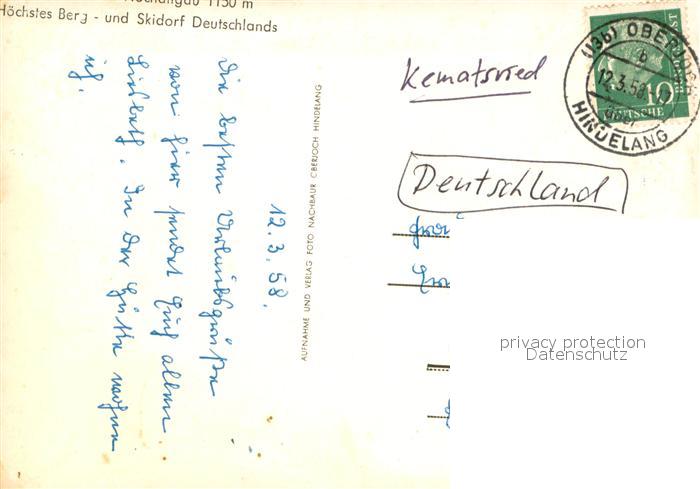 Hochallgäu 1150 m
Höchstes Berg - und Skidorf Deutschlands
12. 3. 58.
die besten Urlaubsgrüße
von hier sendet Euch allen
Liesbeth. In der Hütte wohne
ich.
AUFNAHME UND VERLAG FOTO NACHBAUR OBERJOCH HINDELANG
Kematsried
Deutschland
(13b) OBERJ
b
12.3.58
über
HINDELANG
10
DEUTSCHE
BUNDESPOST
privacy protection
Datenschutz